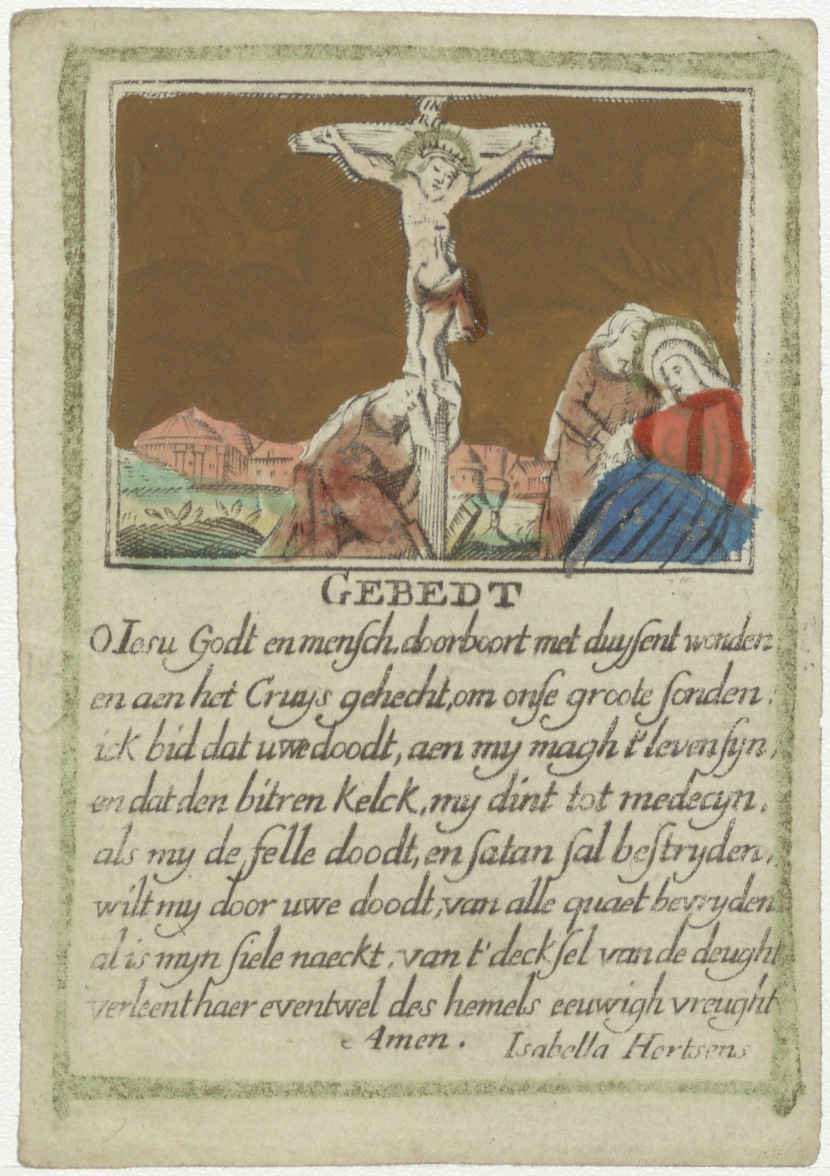 IN
RI
GEBEDT
O Iesu Godt en mensch, doorboort met duysent wonden
en aen het Cruys gehecht, om onse groote sonden,
ick bid dat uwe doodt, aen my magh t'leven syn,
en dat den bitren kelck, my dint tot medecyn,
als my de felle doodt, en satan sal bestryden,
wilt my door uwe doodt, van alle quaet bevryden
al is myn siele naeckt, van t'decksel van de deught
verleent haer eventwel des hemels eeuwigh vreught
Amen.
Isabella Hertsens